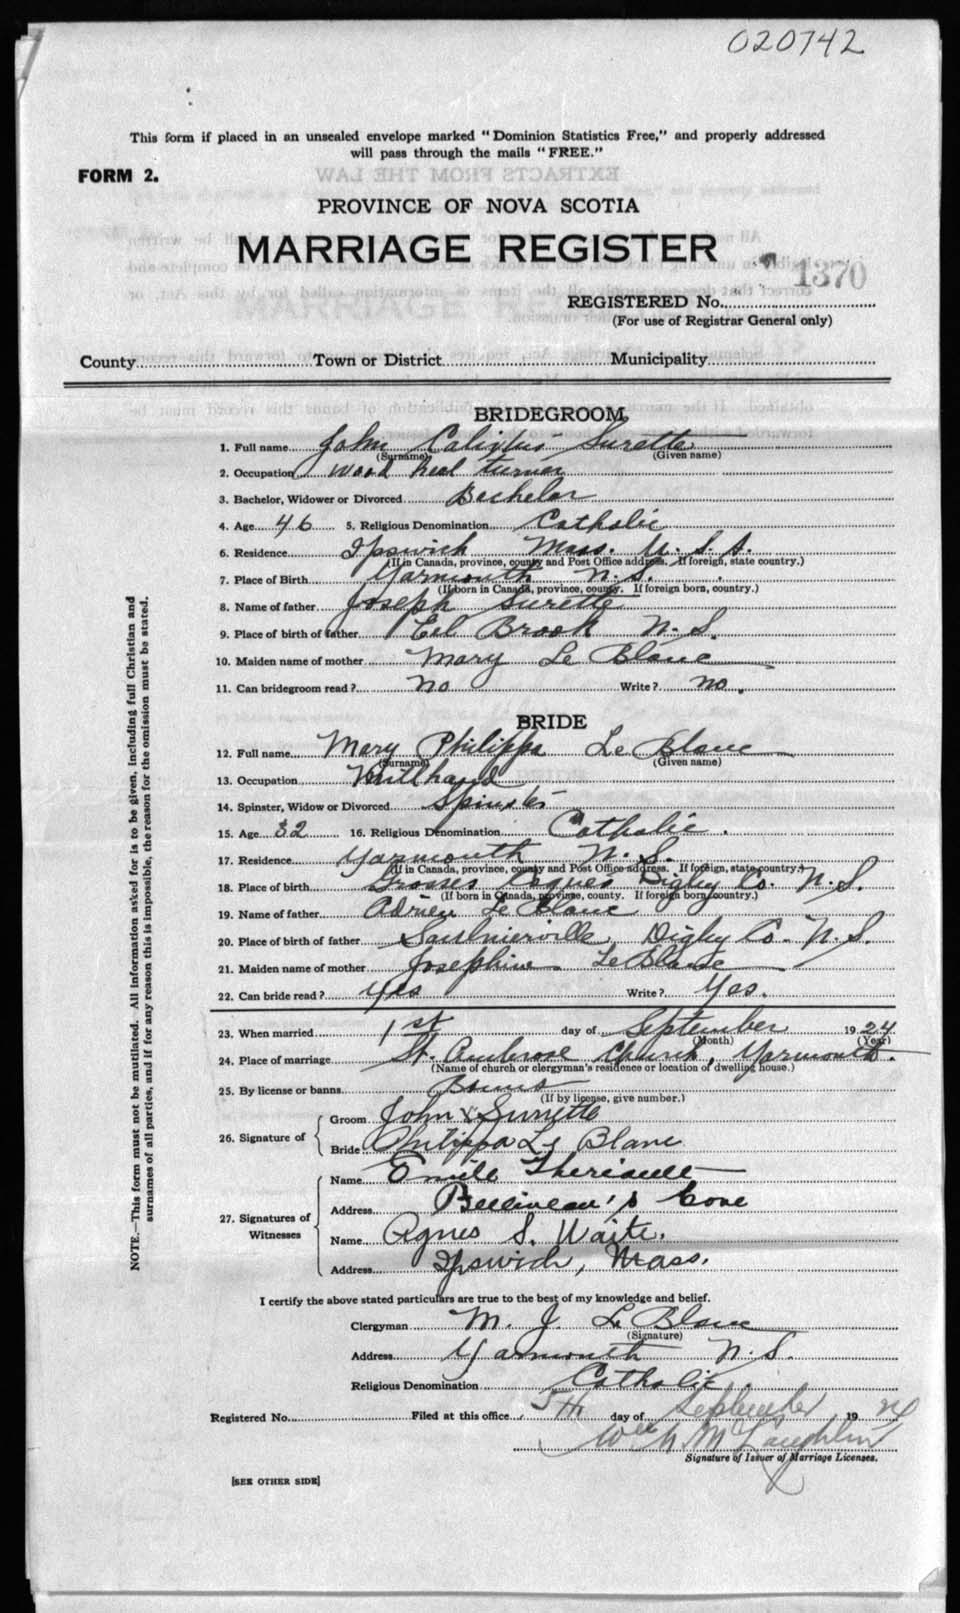 020742
This form if placed in an unsealed envelope marked "Dominion Statistics Free," and properly addressed
will pass through the mails "FREE."
FORM 2.
PROVINCE OF NOVA SCOTIA
MARRIAGE REGISTER
1370
REGISTERED No.
(For use of Registrar General only)
County Town or District Municipality
BRIDEGROOM.
1. Full name John Calixtus Surette
(Surname) (Given name)
2. Occupation Wood heel turner
3. Bachelor, Widower or Divorced Bachelor
4. Age 46 5. Religious Denomination Catholic
6. Residence Ipswich Mass. U.S.A.
(If in Canada, province, county and Post Office address. If foreign, state country.)
7. Place of Birth Yarmouth N.S.
(If born in Canada, province, county. If foreign born, country.)
8. Name of father Joseph Surette
9. Place of birth of father Eel Brook N.S.
10. Maiden name of mother Mary Le Blanc
11. Can bridegroom read? No Write? No.
BRIDE
12. Full name Mary Philippa Le Blanc
(Surname) (Given name)
13. Occupation Millhand
14. Spinster, Widow or Divorced Spinster
15. Age 32 16. Religious Denomination Catholic.
17. Residence Yarmouth N.S.
(If in Canada, province, county and Post Office address. If foreign, state country.)
18. Place of birth Grosses Coques Digby Co. N.S.
(If born in Canada, province, county. If foreign born, country.)
19. Name of father Adrien Le Blanc
20. Place of birth of father Saulnierville Digby Co. N.S.
21. Maiden name of mother Josephine Le Blanc
22. Can bride read? Yes Write? Yes.
23. When married 1st day of September 1924
(Month) (Year)
24. Place of marriage St. Ambrose Church, Yarmouth.
(Name of church or clergyman's residence or location of dwelling house.)
25. By license or banns Banns
(If by license, give number.)
26. Signature of Groom John X Surette
Bride Philippa Le Blanc
27. Signatures of Witnesses Name Emile Theriault
Address Belliveau's Cove
Name Agnes S. Waite.
Address Ipswich, Mass.
I certify the above stated particulars are true to the best of my knowledge and belief.
Clergyman M. J. Le Blanc
(Signature)
Address Yarmouth N.S.
Religious Denomination Catholic.
Registered No. Filed at this office 5th day of September 1924
McLaughlin
Signature of Issuer of Marriage Licenses.
[SEE OTHER SIDE]
NOTE.—This form must not be mutilated. All information asked for is to be given, including full Christian and
surnames of all parties, and if for any reason this is impossible, the reason for the omission must be stated.